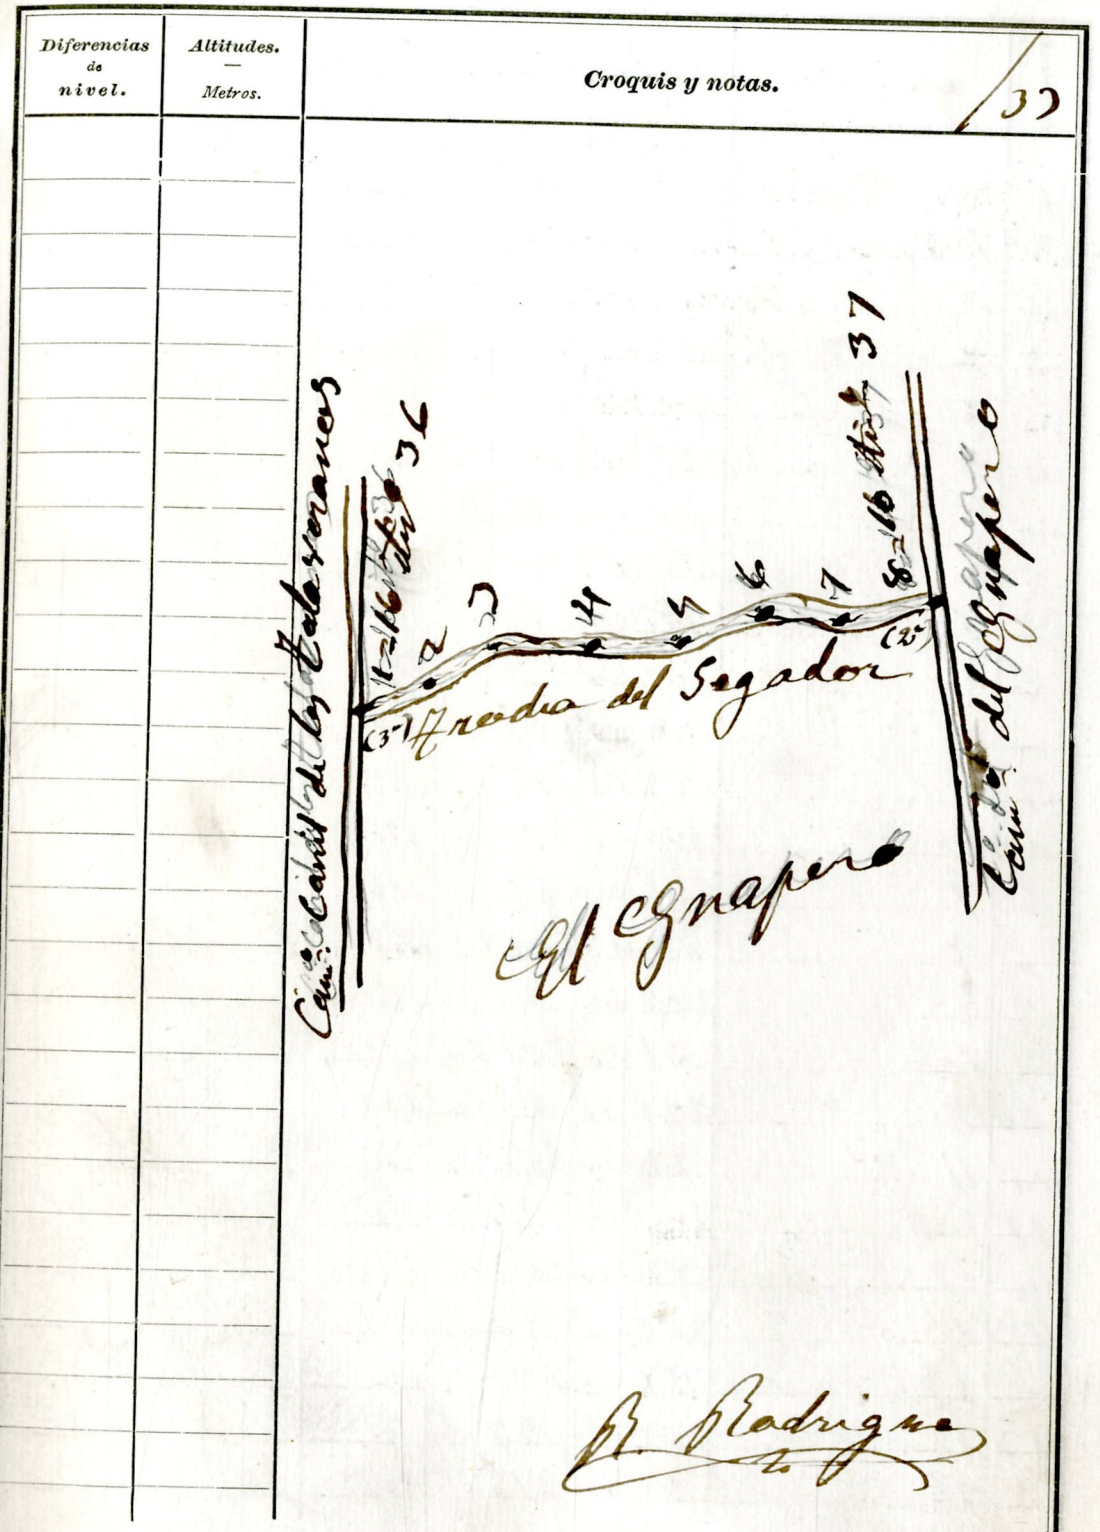 Diferencias
de
nivel.
Altitudes.
—
Metros.
Croquis y notas.
37
Cam.º de los Talaveranos
1=16 Itin.º 36
2
3
4
5
6
7
8=16 Itin.º 37
(3º)
(2º)
del Segador
Cam.º del Guapero
El Guapero
R. Rodrigue